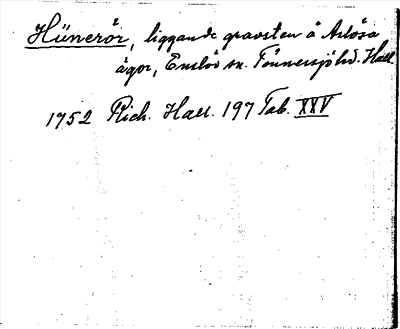 Hüneror, liggande gravsten å Arlösa
ägor, Enslöv sn. Tönnersjö hd. Hall.
1752 Rich. Hall. 197 Tab. XXV